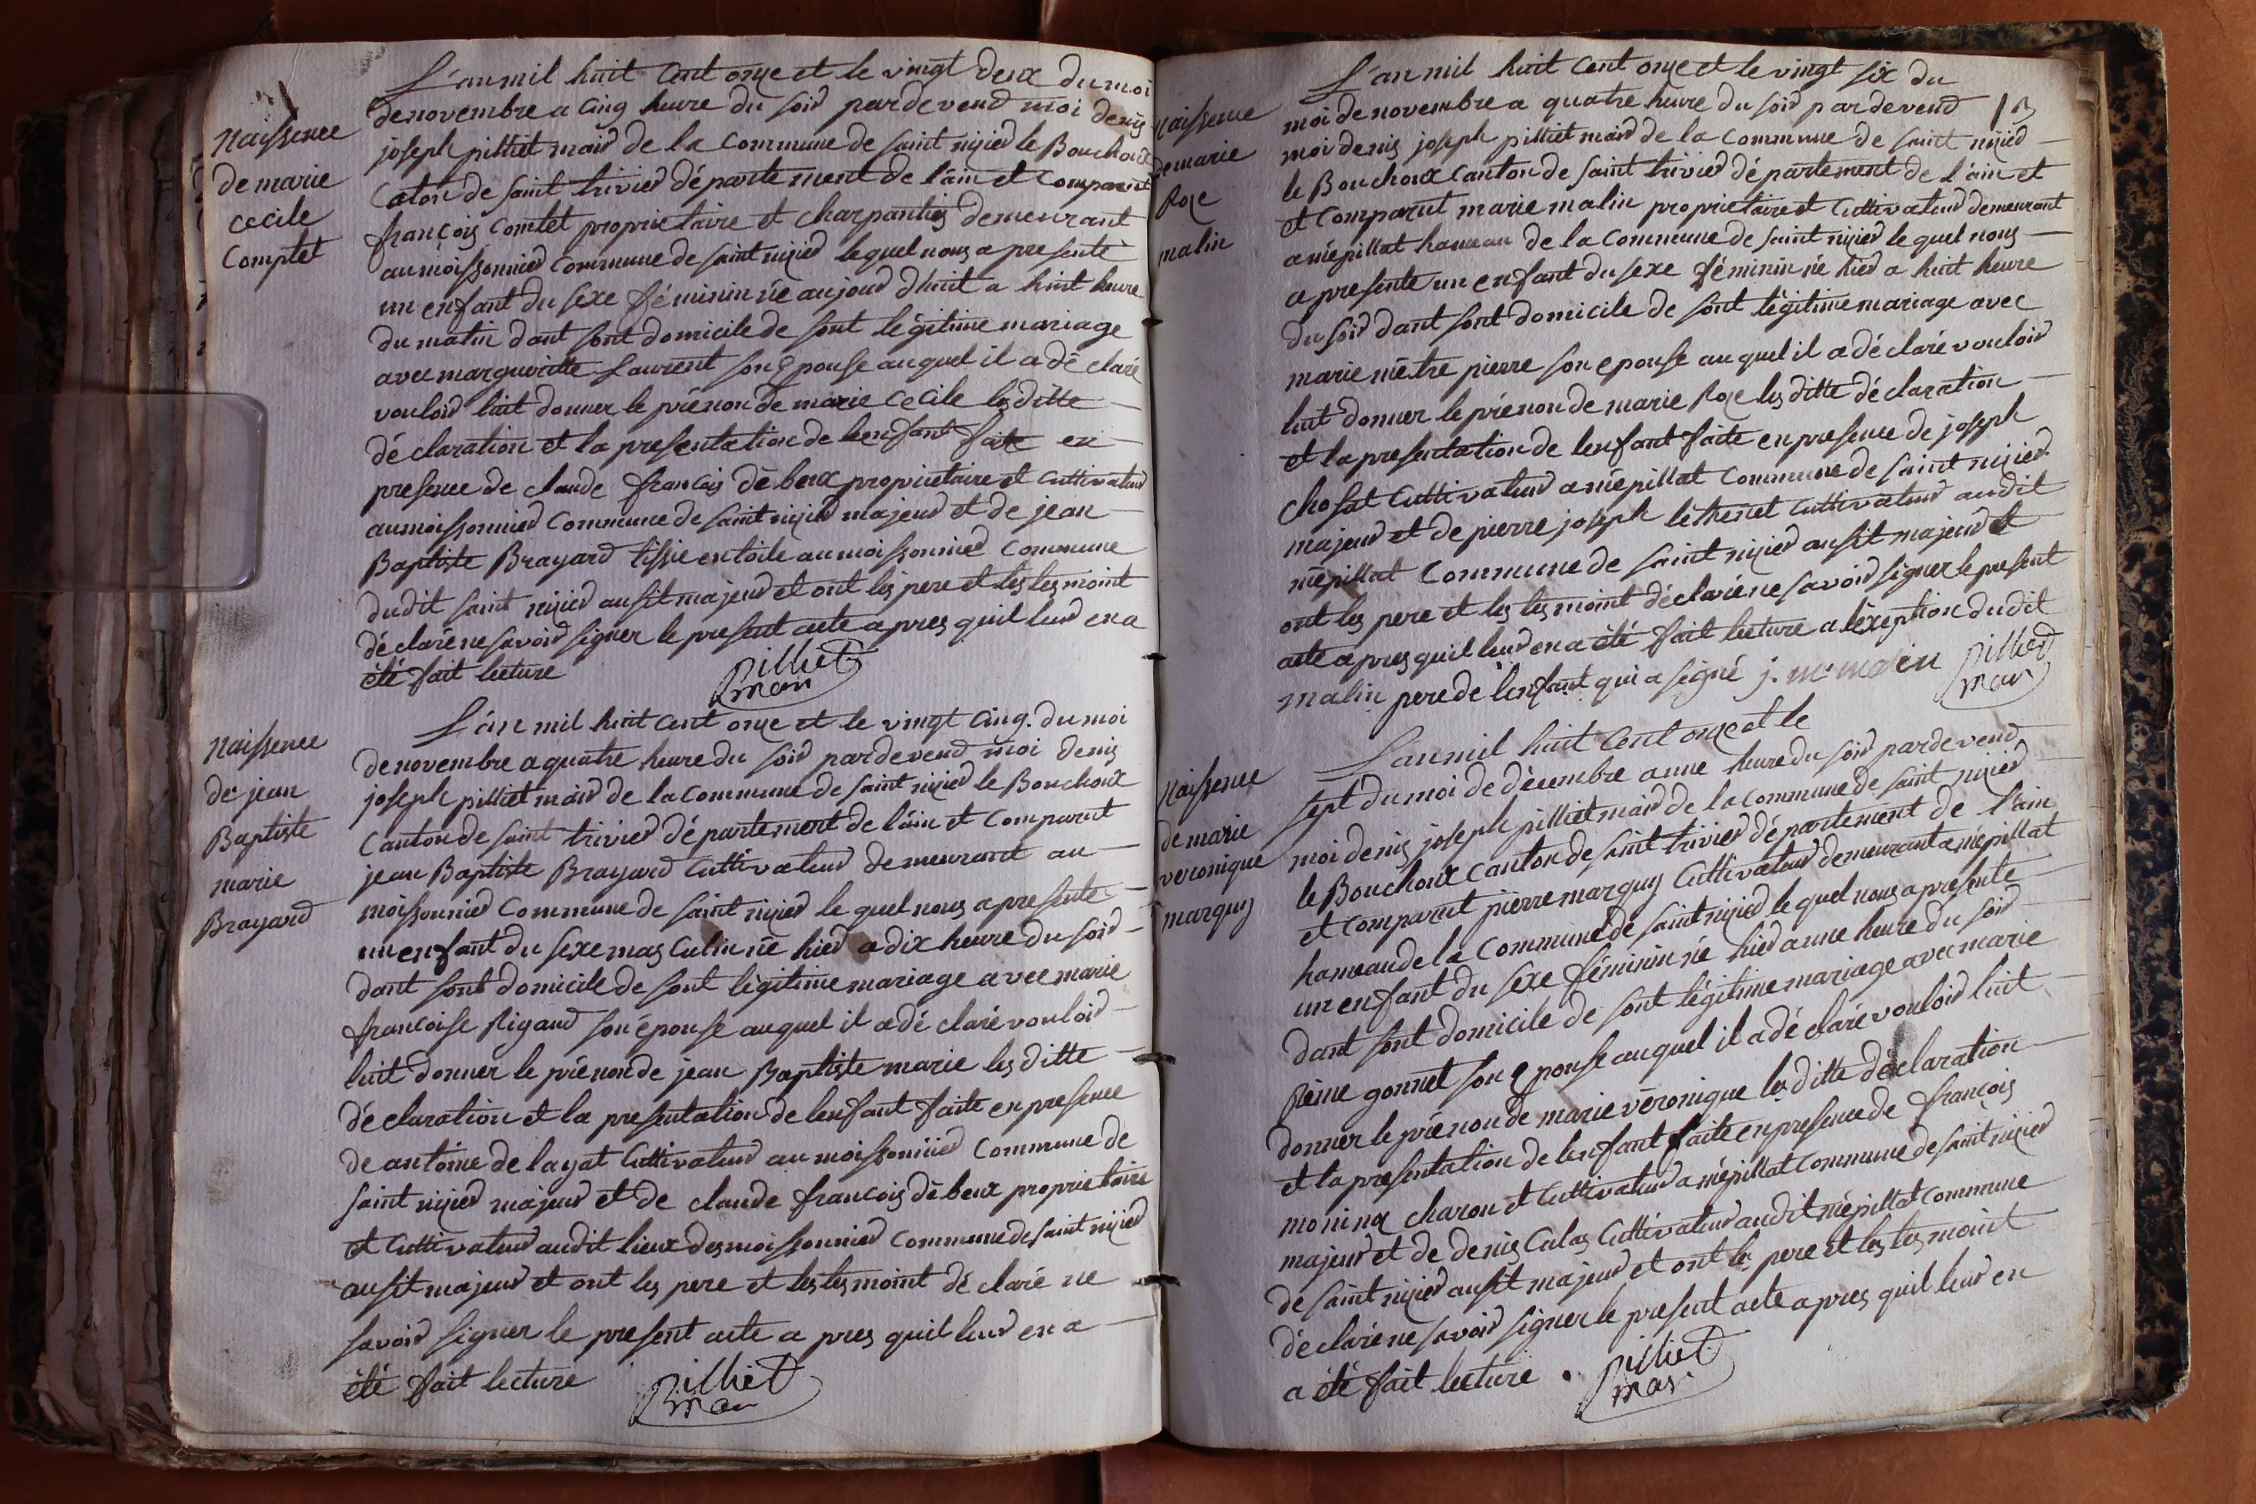 Naissence
de marie
cecile
Comptet
L'an mil huit cent onze et le vingt deux du moi
de novembre a cinq heure du soir pardevend moi denis
joseph pilliet mair de la commune de saint nizier le Bouchoux
Caton de saint trivier département de l'ain et Comparut
francois Comtet proprietaire et charpantier demeurant
au moissonnier Commune de saint nizier lequel nous a presenté
un enfant du sexe féminin née aujour dhuit a huit heure
du matin dant sont domicile de sont légitime mariage
avec margueritte Laurent son épouse auquel il a dé claré
vouloir luit donner le prénon de marie Cecile les ditte
déclaration et la presentation de lenfant faite en
presence de claude francois débeux proprietaire et Cuttivateur
au moissonnier Commune de saint nizier majeur et de jean
Baptiste Brayard tissié en toile au moissonnier Commune
dudit saint nizier ausit majeur et ont les pere et les tesmoint
déclaré ne savoir signer le present acte apres quil leur en a
été fait lecture
Pilliet
mair
Naissence
de jean
Baptiste
marie
Brayard
L'an mil huit cent onze et le vingt cinq. du moi
de novembre a quatre heure du soir pardevend moi denis
joseph pilliet mair de la commune de saint nizier le Bouchoux
Canton de saint trivier département de l'ain et Comparut
jean Baptiste Brayard Cuttivateur demeurant au
moissonnier Commune de saint nizier le quel nous a presenté
un enfant du sexe mas culin né hier a dix heure du soir
dant sont domicile de sont légitime mariage avec marie
francoise Rigaud son épouse auquel il a dé claré vouloir
luit donner le prénon de jean Baptiste marie les ditte
déclaration et la presentation de lenfant faite en presence
de antoine delayat Cuttivateur au moissonnier Commune de
saint nizier majeur et de claude francois débeux proprietaire
et Cuttivateur audit lieux des moissonnier Commune de saint nizier
ausit majeur et ont les pere et les tesmoint dé claré ne
savoir signer le present acte a pres quil leur en a
été fait lecture
Pilliet
mair
13
Naissence
de marie
Roze
malin
L'an mil huit cent onze et le vingt six du
moi de novembre a quatre heure du soir pardevend
moi denis joseph pilliet mair de la commune de saint nizier
le Bouchoux Canton de saint trivier département de l'ain et
et Comparut marie malin proprietaire et Cuttivateur demeurant
a mépillat hameau de la Commune de saint nizier le quel nous
a presenté un enfant du sexe féminin née hier a huit heure
du soir dant sont domicile de sont légitime mariage avec
marie métre pierre son epouse auquel il a déclaré vouloir
luit donner le prénon de marie Roze les ditte déclaration
et la presentation de lenfant faite en presence de joseph
chosat Cuttivateur a mépillat Commune de saint nizier
majeur et de pierre joseph léthenet Cuttivateur audit
mépillat Commune de saint nizier ausit majeur et
ont les pere et les tesmoint déclaré ne savoir signer le present
acte apres quil leur en a été fait lecture a léxeption dudit
malin pere de lenfant qui a signé j. m. malin
Pilliet
mair
Naissence
de marie
veronique
marquis
L'an mil huit cent onze et le
sept du moi de décembre a une heure du soir pardevend
moi denis joseph pilliet mair de la commune de saint nizier
le Bouchoux Canton de saint trivier département de l'ain
et Comparut pierre marquis Cuttivateur demeurant a mépillat
hameau de la Commune de saint nizier le quel nous a presenté
un enfant du sexe féminin née hier a une heure du soir
dant sont domicile de sont légitime mariage avec marie
Réine gonnet son épouse auquel il a dé claré vouloir luit
donner le prénon de marie véronique les ditte déclaration
et la presentation de lenfant faite en presence de francois
moninx charon et Cuttivateur a mépillat Commune de saint nizier
majeur et de denis Culas Cuttivateur audit mépillat Commune
de saint nizier ausit majeur et ont les pere et les tesmoint
déclaré ne savoir signer le present acte apres quil leur en
a été fait lecture .
Pilliet
mair